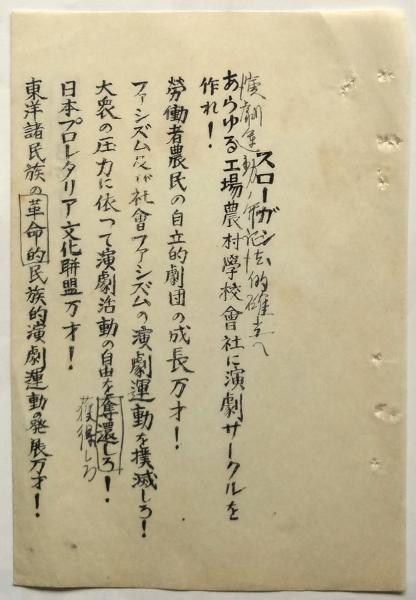 スローガン
演劇運動ノ弁証法的確立へ
あらゆる工場農村學校會社に演劇サークルを
作れ!
勞働者農民の自立的劇団の成長万才!
ファシズム及び社會ファシズムの演劇運動を撲滅しろ!
大衆の圧力に依つて演劇活動の自由を奪還しろ!
獲得しろ
日本プロレタリア文化聯盟万才!
東洋諸民族の革命的民族的演劇運動の発展万才!